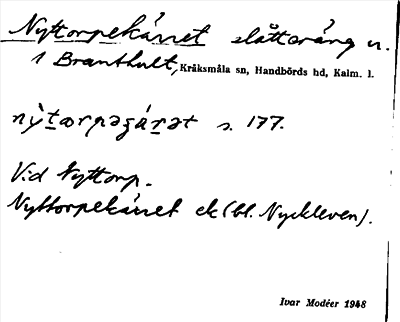 Nyttorpekärret slåtteräng n.
i Branthult, Kråksmåla sn, Handbörds hd, Kalm. l.
s. 177.
Vid Nyttorp.
Nyttorpekärret ek (bl. Nyckleven).
Ivar Modéer 1948